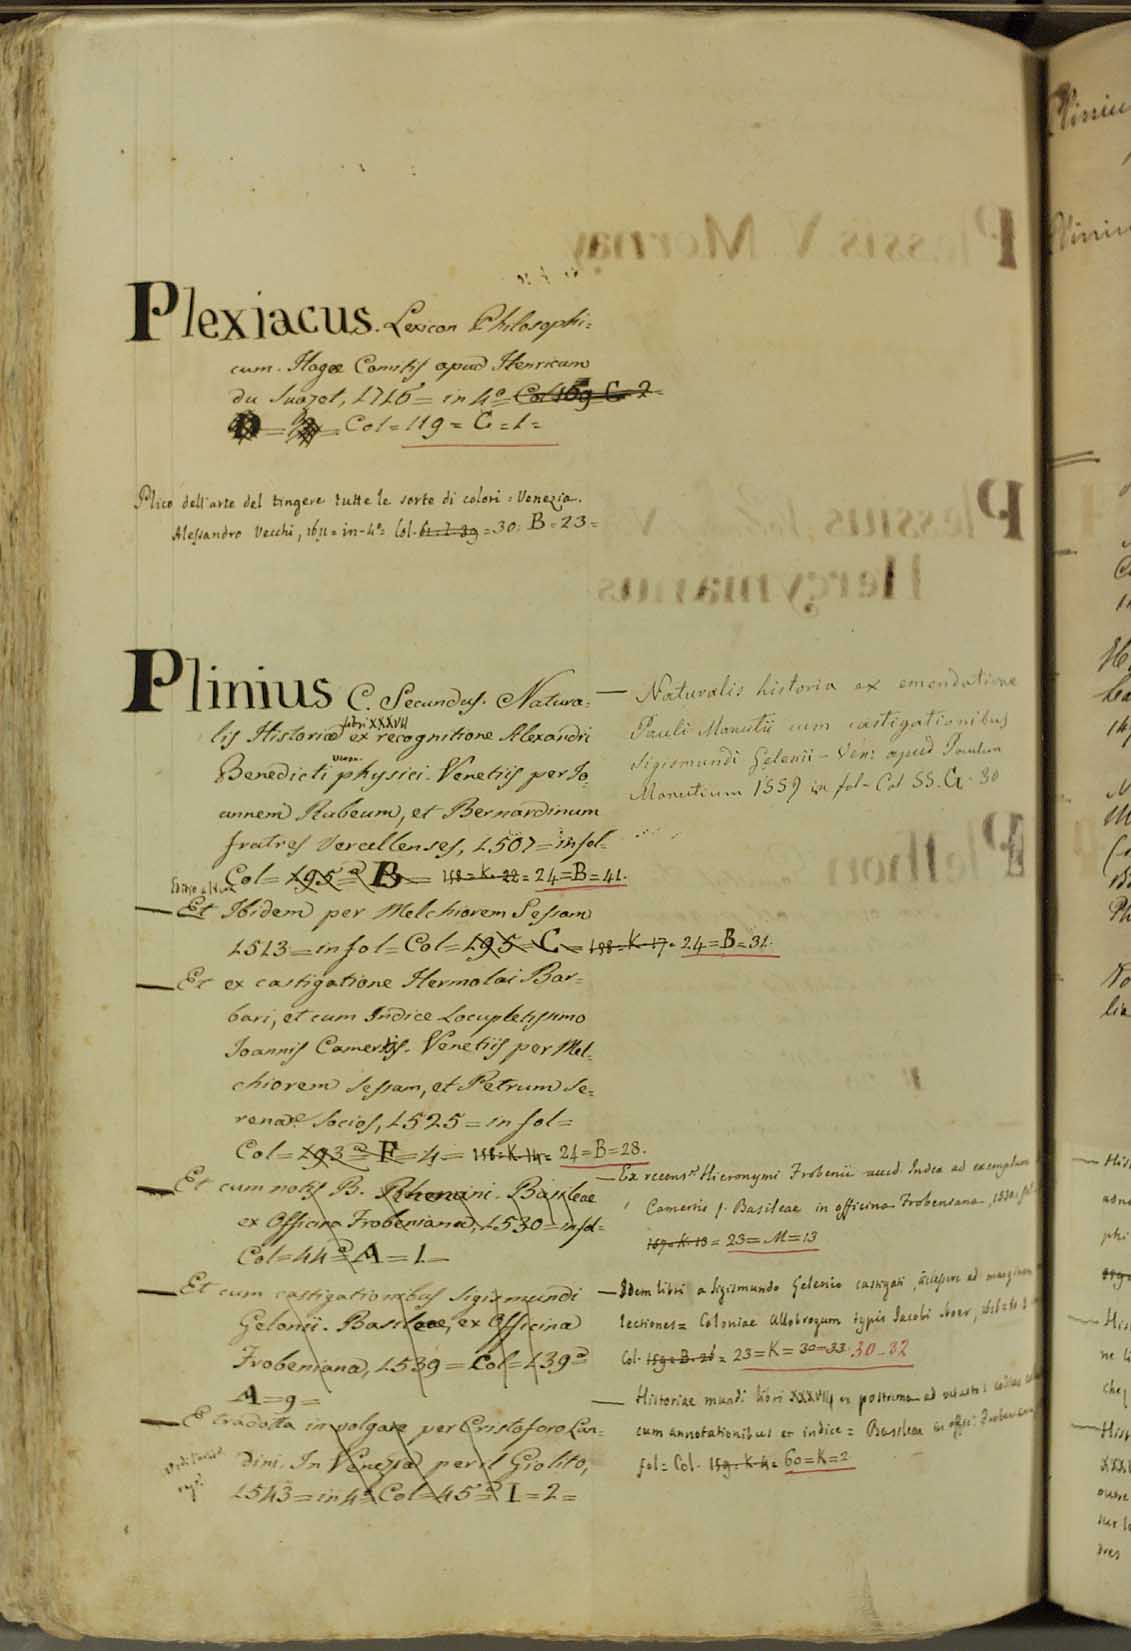 Plexiacus. Lexicon Philosophi=
cum. Hagæ Comitis apud Henricum
du Sauzet, 1716 = in 4º = Col 159 C = 2 =
Col = 119 = C = 1 =
Plico dell'arte del tingere tutte le sorte di colori = Venezia.
Alessandro Vecchi, 1611 = in-4º = Col. = 30 = B = 23 =
Plinius C. Secundus. Natura=
lis Historiæ libri XXXVII ex recognitione Alexandri
Benedicti physici. Venetiis per Jo
annem Rubeum, et Bernardinum
fratres Vercellenses, 1507 = in fol=
Col = 195 = B = 158 = K = 22 = 24 = B = 41.
— Et Ibidem per Melchiorem Sessam
1513 = in fol = Col = 195 = C = 158 = K = 17 = 24 = B = 31.
— Et ex castigatione Hermolai Bar=
bari, et cum Indice Locupletissimo
Joannis Camertis. Venetiis per Mel=
chiorem Sessam, et Petrum Se=
renæ Socios, 1525 = in fol =
Col = 193 = F = 4 = 158 = K = 14 = 24 = B = 28.
— Et cum notis B. Rhenani. Basileae
ex Officina Frobeniana, 1530 = in fol=
Col = 44 = A = 1 =
— Et cum castigationibus Sigismundi
Gelenii. Basileae, ex Officina
Frobeniana, 1539 = Col = 139 =
A = 9 =
— E tradotta in volgare per Cristoforo Lan=
dini. In Venezia per il Giolito,
1543 = in 4º Col = 45 = I = 2 =
— Naturalis historia ex emendatione
Pauli Manutii cum castigationibus
Sigismundi Gelenii - Ven: apud Paulum
Manutium 1559 in fol - Col 55. G. 30
— Ex recens.e Hieronymi Frobenii Index ad exemplum
Camertis . Basileae in officina Frobeniana, 1530
167 = K = 13 = 23 = M = 13
— Idem libri a Sigismundo Gelenio castigati,
lectiones = Coloniae Allobrogum typis Jacobi Stoer,
Col. 159 = B. 26 = 23 = K = 30-33 30-32
— Historiae mundi libri XXXVII ex postrema ad vetustos
cum annotationibus et indice = Basileae in offic.
fol = Col. 159 = K = 60 = K = 2